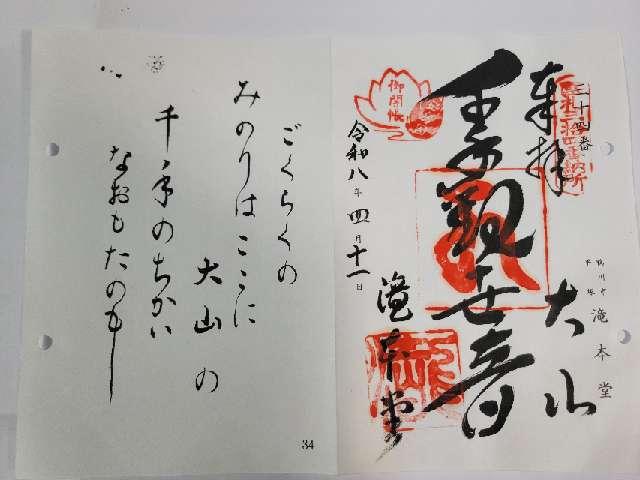 三十四番
奉拝 大山
鴨川市
平塚
滝本堂
千手観世音
滝本堂
御開帳
令和八年四月十一日
ごくらくの
みのりはここに
大山の
千手のちかい
なおもたのもし
34